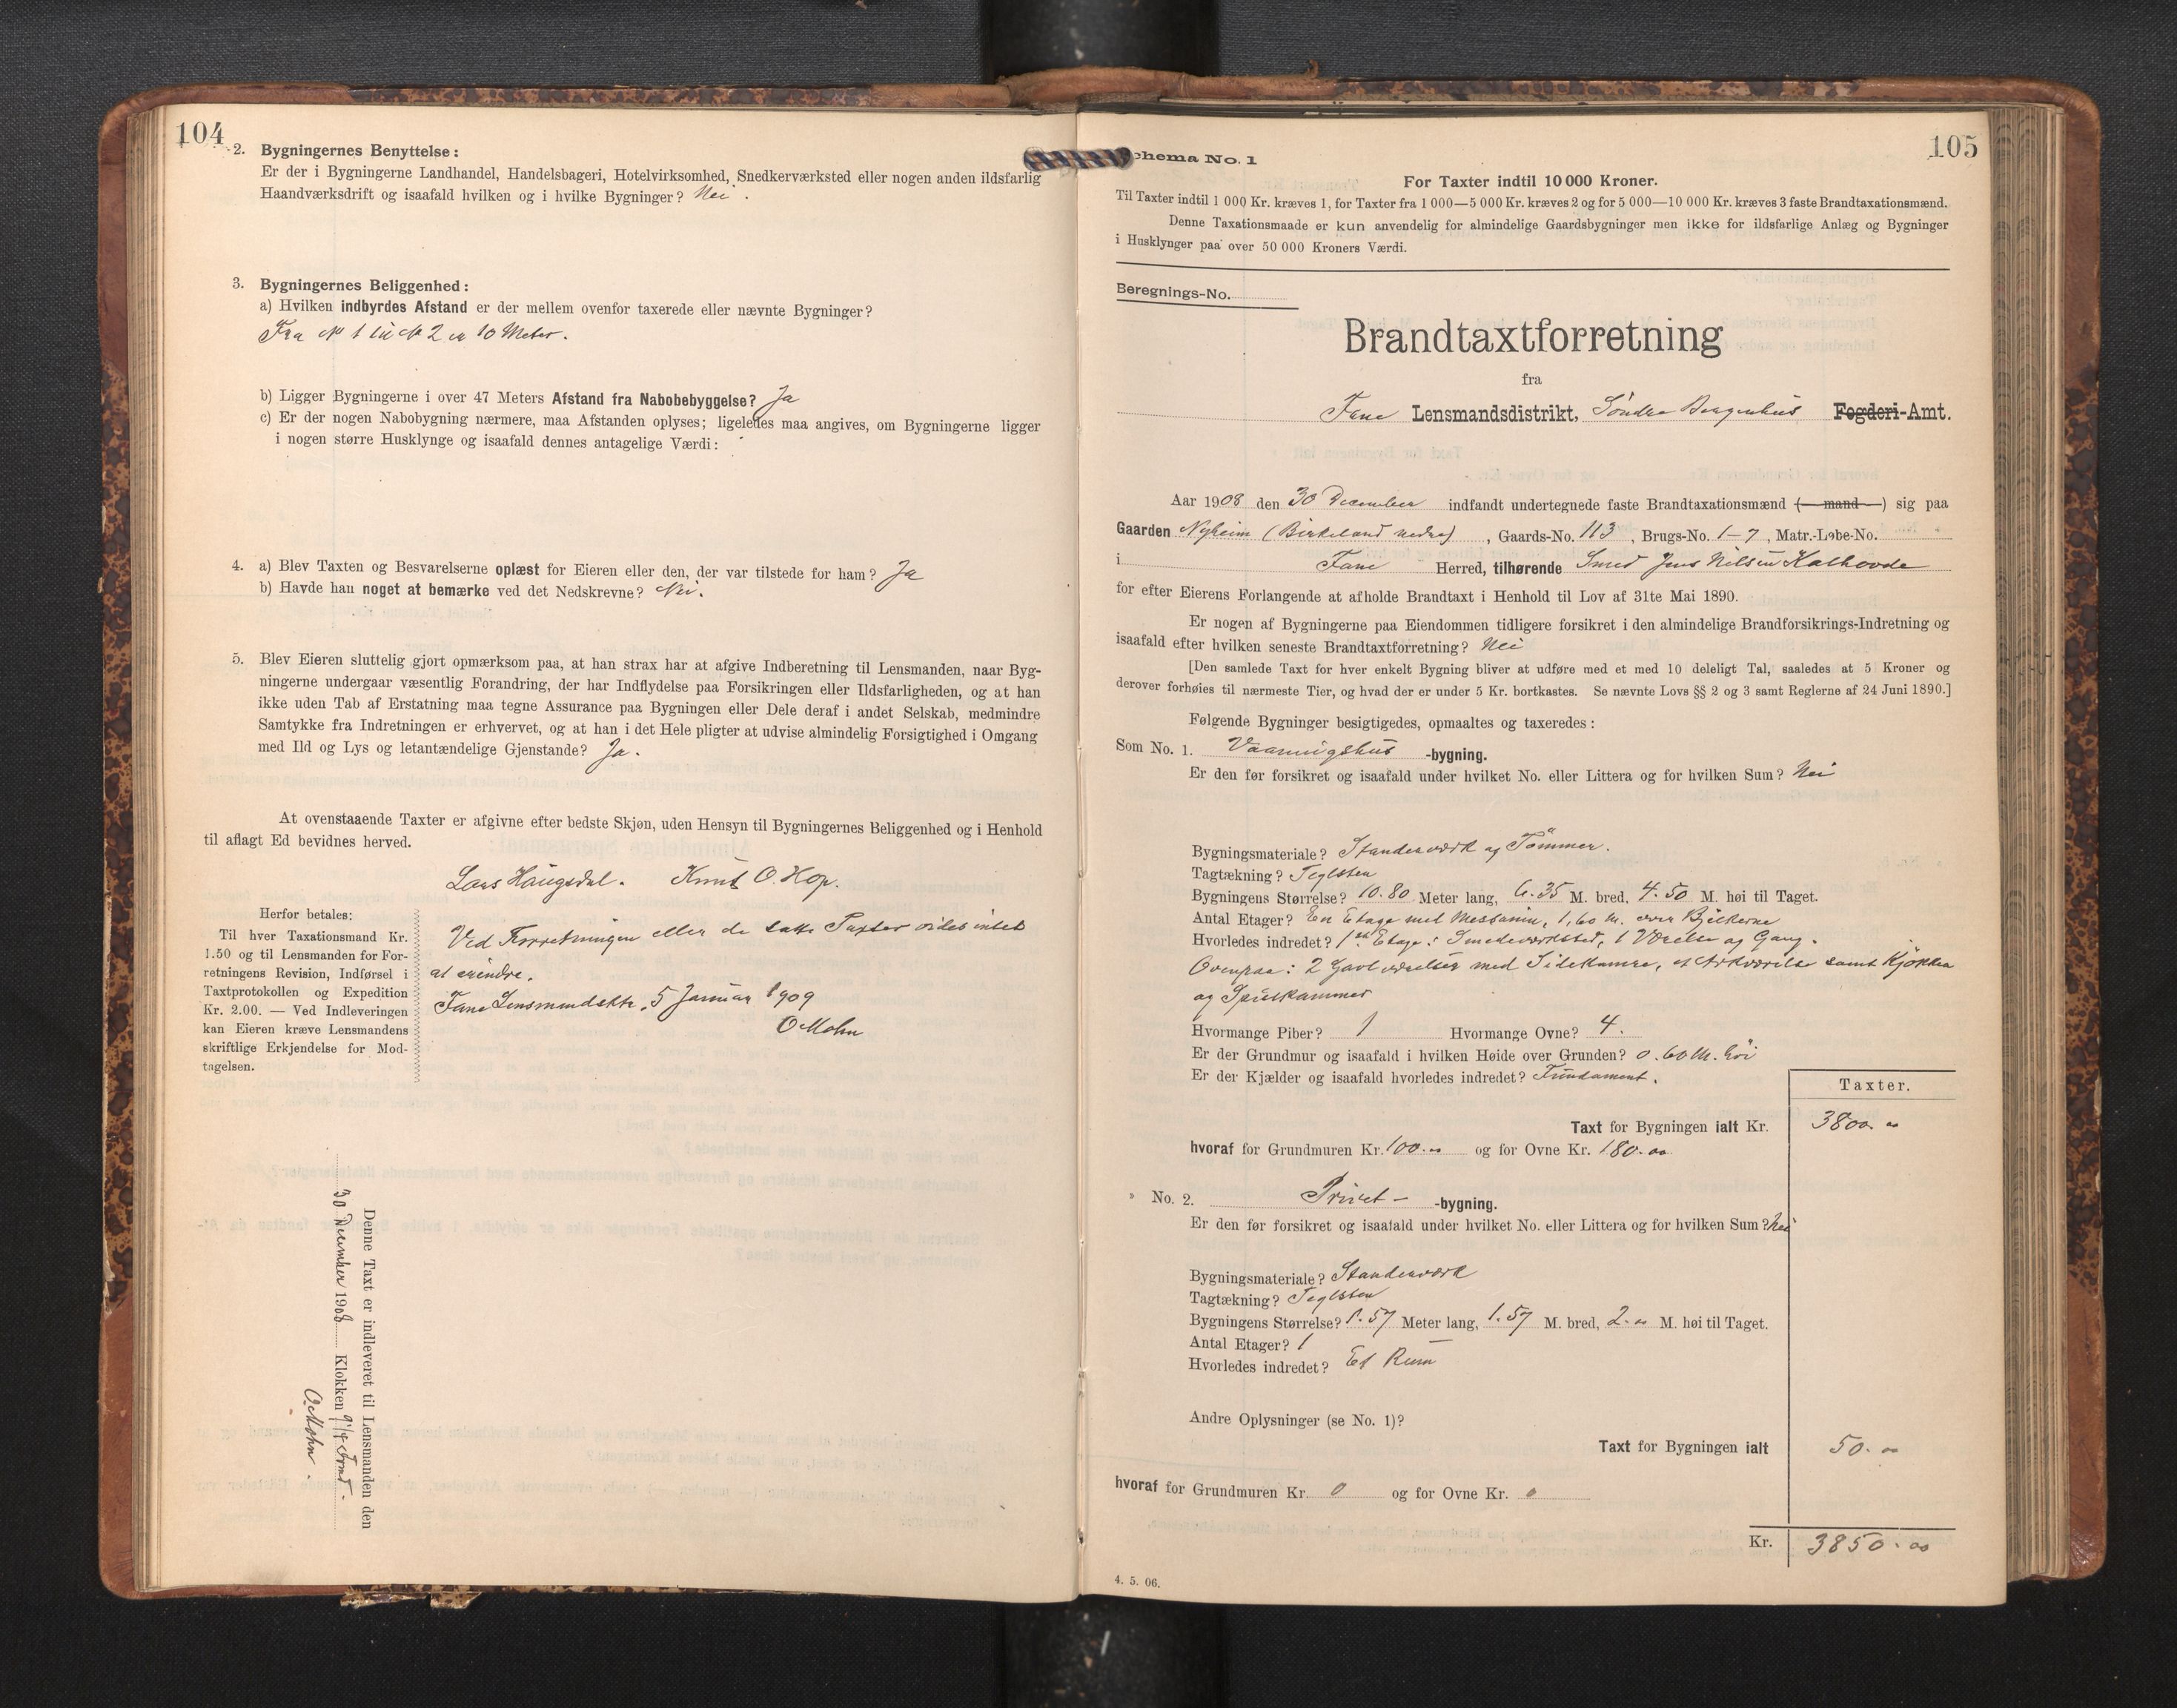 104
2. Bygningernes Benyttelse:
Er der i Bygningerne Landhandel, Handelsbageri, Hotelvirksomhed, Snedkerværksted eller nogen anden ildsfarlig
Haandværksdrift og isaafald hvilken og i hvilke Bygninger? Nei.
3. Bygningernes Beliggenhed:
a) Hvilken indbyrdes Afstand er der mellem ovenfor taxerede eller nævnte Bygninger?
Fra № 1 til № 2 er 10 Meter.
b) Ligger Bygningerne i over 47 Meters Afstand fra Nabobebyggelse? Ja
c) Er der nogen Nabobygning nærmere, maa Afstanden oplyses; ligeledes maa angives, om Bygningerne ligger
i nogen større Husklynge og isaafald dennes antagelige Værdi:
4. a) Blev Taxten og Besvarelserne oplæst for Eieren eller den, der var tilstede for ham? Ja
b) Havde han noget at bemærke ved det Nedskrevne? Nei.
5. Blev Eieren sluttelig gjort opmærksom paa, at han strax har at afgive Indberetning til Lensmanden, naar Byg-
ningerne undergaar væsentlig Forandring, der har Indflydelse paa Forsikringen eller Ildsfarligheden, og at han
ikke uden Tab af Erstatning maa tegne Assurance paa Bygningen eller Dele deraf i andet Selskab, medmindre
Samtykke fra Indretningen er erhvervet, og at han i det Hele pligter at udvise almindelig Forsigtighed i Omgang
med Ild og Lys og letantændelige Gjenstande? Ja.
At ovenstaaende Taxter er afgivne efter bedste Skjøn, uden Hensyn til Bygningernes Beliggenhed og i Henhold
til aflagt Ed bevidnes herved.
Lars Haugsdal. Knut O. Hop.
Herfor betales:
Til hver Taxationsmand Kr.
1.50 og til Lensmanden for For-
retningens Revision, Indførsel i
Taxtprotokollen og Expedition
Kr. 2.00. — Ved Indleveringen
kan Eieren kræve Lensmandens
skriftlige Erkjendelse for Mod-
tagelsen.
Ved Forretningen eller de satte Taxter vides intet
at erindre.
Fane Lensmandsktr. 5 Januar 1909
O Mohn
Denne Taxt er indleveret til Lensmanden den
30 December 1908 Klokken 9 1/4 Form.
O. Mohn.
105
Schema No. 1
For Taxter indtil 10 000 Kroner.
Til Taxter indtil 1 000 Kr. kræves 1, for Taxter fra 1 000—5 000 Kr. kræves 2 og for 5 000—10 000 Kr. kræves 3 faste Brandtaxationsmænd.
Denne Taxationsmaade er kun anvendelig for almindelige Gaardsbygninger men ikke for ildsfarlige Anlæg og Bygninger
i Husklynger paa over 50 000 Kroners Værdi.
Beregnings-No.
Brandtaxtforretning
fra
Fane Lensmandsdistrikt, Söndre Bergenhus Fogderi-Amt.
Aar 1908 den 30 December indfandt undertegnede faste Brandtaxationsmænd (— mand —) sig paa
Gaarden Nyheim (Birkeland nedre), Gaards-No. 113, Brugs-No. 1-7, Matr.-Løbe-No.
i Fane Herred, tilhørende Smed Jens Nilsen Kalhovde
for efter Eierens Forlangende at afholde Brandtaxt i Henhold til Lov af 31te Mai 1890.
Er nogen af Bygningerne paa Eiendommen tidligere forsikret i den almindelige Brandforsikrings-Indretning og
isaafald efter hvilken seneste Brandtaxtforretning? Nei
[Den samlede Taxt for hver enkelt Bygning bliver at udføre med et med 10 deleligt Tal, saaledes at 5 Kroner og
derover forhøies til nærmeste Tier, og hvad der er under 5 Kr. bortkastes. Se nævnte Lovs §§ 2 og 3 samt Reglerne af 24 Juni 1890.]
Følgende Bygninger besigtigedes, opmaaltes og taxeredes:
Som No. 1. Vaaningshus -bygning.
Er den før forsikret og isaafald under hvilket No. eller Littera og for hvilken Sum? Nei
Bygningsmateriale? Standerværk og Tömmer.
Tagtækning? Teglsten
Bygningens Størrelse? 10.80 Meter lang, 6.35 M. bred, 4.50 M. høi til Taget.
Antal Etager? En Etage med Messanin, 1,60 m. over Bjelkerne
Hvorledes indredet? 1ste Etage: Smedeværksted, 1 Værelse og Gang.
Ovenpaa: 2 Gavlværelser med Sidekamre, et Arkværelse samt Kjökken
og Spiskammer
Hvormange Piber? 1 Hvormange Ovne? 4.
Er der Grundmur og isaafald i hvilken Høide over Grunden? 0.60 M. höi
Er der Kjælder og isaafald hvorledes indredet? Fundament.
Taxter.
Taxt for Bygningen ialt Kr. 3800.00
hvoraf for Grundmuren Kr. 100.00 og for Ovne Kr. 180.00
" No. 2. Privet- -bygning.
Er den før forsikret og isaafald under hvilket No. eller Littera og for hvilken Sum? Nei
Bygningsmateriale? Standerværk
Tagtækning? Teglsten
Bygningens Størrelse? 1.57 Meter lang, 1.57 M. bred, 2.00 M. høi til Taget.
Antal Etager? 1
Hvorledes indredet? Et Rum
Andre Oplysninger (se No. 1)?
Taxt for Bygningen ialt 50.00
hvoraf for Grundmuren Kr. 0 og for Ovne Kr. 0
Kr. 3850.00
4. 5. 06.